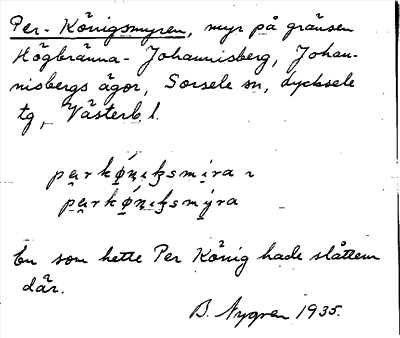 Per-Königsmyren, myr på gränsen
Högbränna-Johannisberg, Johan-
nisbergs ägor, Sorsele sn, Lycksele
tg, Västerb. l.
En som hette Per König hade slåttern
där.
B. Nygren 1935.